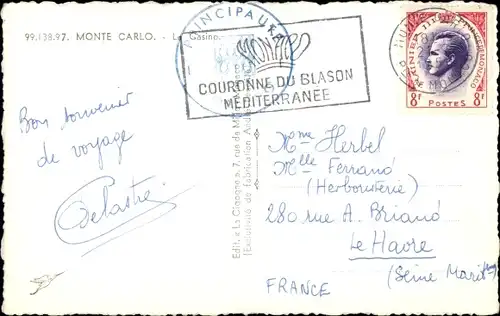 99.138.97. MONTE CARLO. - Le Casino.
PRINCIPAUTÉ
MONACO
COURONNE DU BLASON
MÉDITERRANÉE
RAINIER III PRINCE DE MONACO
8F POSTES 8F
Bon souvenir
de voyage
Delastre
Edit. « La Cigogne », 7, rue de
Exclusivité de fabrication
Mme Herbel
Mlle Ferrand
(Herboristerie)
280 rue A. Briand
Le Havre
(Seine Maritime)
FRANCE